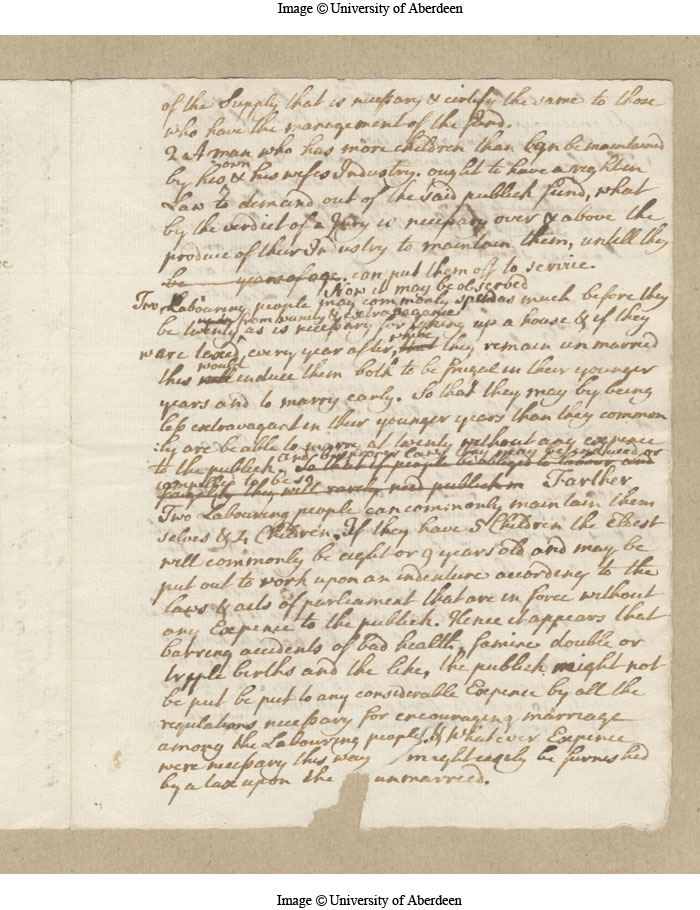 Image © University of Aberdeen
of the Supply that is necessary & certify the same to those
who have the management of the fund.
2 A man who has more children than can be maintained
own
by his & his wifes Industry. ought to have a right in
Law to demand out of the said publick fund, what
by the verdict of a Jury is necessary over & above the
produce of their Industry to maintain them, untill they
be years of age. can put them off to service.
Now it may be observed
Two Labouring people may commonly spend as much before they
from vanity & extravagance
be twenty, as is necessary for taking up a house & if they
while
ware taxed every year after, that they remain unmarried
would
this will induce them both to be frugal in their younger
years and to marry early. So that they may by being
less extravagant in their younger years than they common
:ly are be able to marry at twenty without any expence
and in proper cases they may be induced or
to the publick. So that if people be obliged to labour and
compelled to be so
frugality they will rarely need publick Farther
Two Labouring people can commonly maintain them
selves & 4 Children. If they have 5 Children the Eldest
will commonly be eight or 9 years old and may be
put out to work upon an indenture according to the
laws & acts of parliament that are in force without
any Expence to the publick. Hence it appears that
barring accidents of bad health, famine double or
tripple births and the like, the publick might not
be put be put to any considerable Expence by all the
regulations necessary for encouraging marriage
among the Labouring people. & Whatever Expence
were necessary this way might easily be furnished
by a tax upon the unmarried.
Image © University of Aberdeen